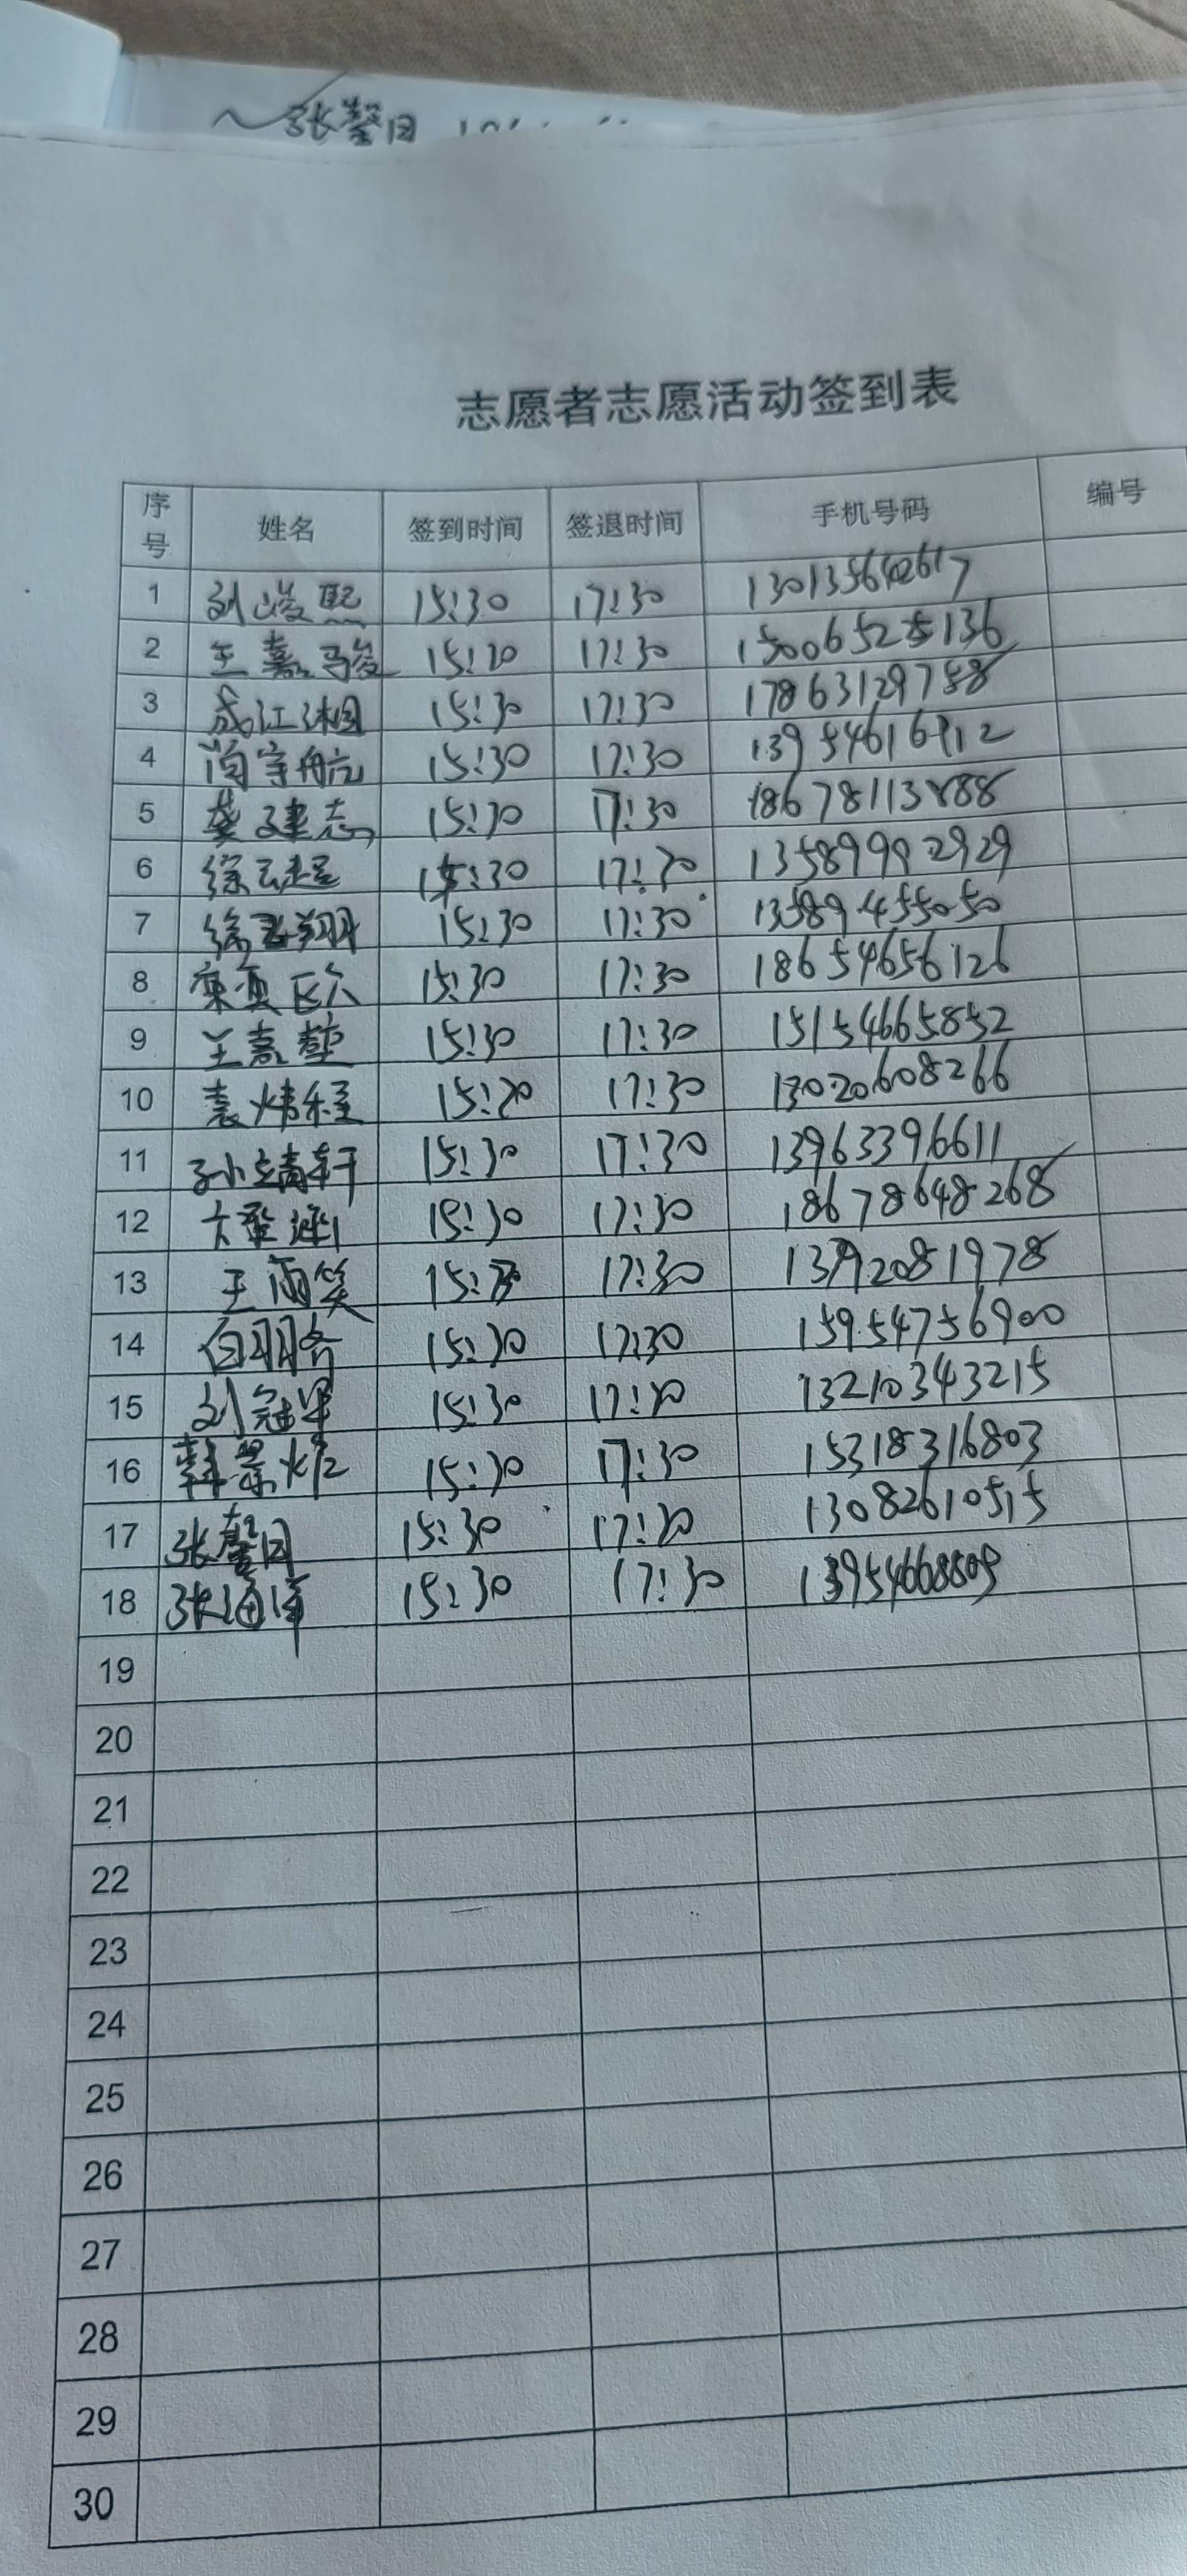 张馨日
志愿者志愿活动签到表
序号 姓名 签到时间 签退时间 手机号码 编号
1 刘峻熙 15:30 17:30
2 王嘉骏 15:30 17:30 15006525136
3 成江湘 15:30 17:30
4 宇航 15:30 17:30
5 龚建志 15:30 17:30 18678113888
6 徐云超 15:30 17:30 13589992929
7 徐翔 15:30 17:30 13589455050
8 15:30 17:30 18654656126
9 王嘉慧 15:30 17:30 15154665852
10 袁炜程 15:30 17:30 13020608266
11 孙靖轩 15:30 17:30 13963396611
12 15:30 17:30 18678648268
13 王雨笑 15:30 17:30 13792081978
14 白羽齐 15:30 17:30 15954756900
15 刘冠军 15:30 17:30 13210343215
16 韩景 15:30 17:30 15318316803
17 张馨日 15:30 17:30 13082610515
18 张 15:30 17:30 13954668809
19
20
21
22
23
24
25
26
27
28
29
30